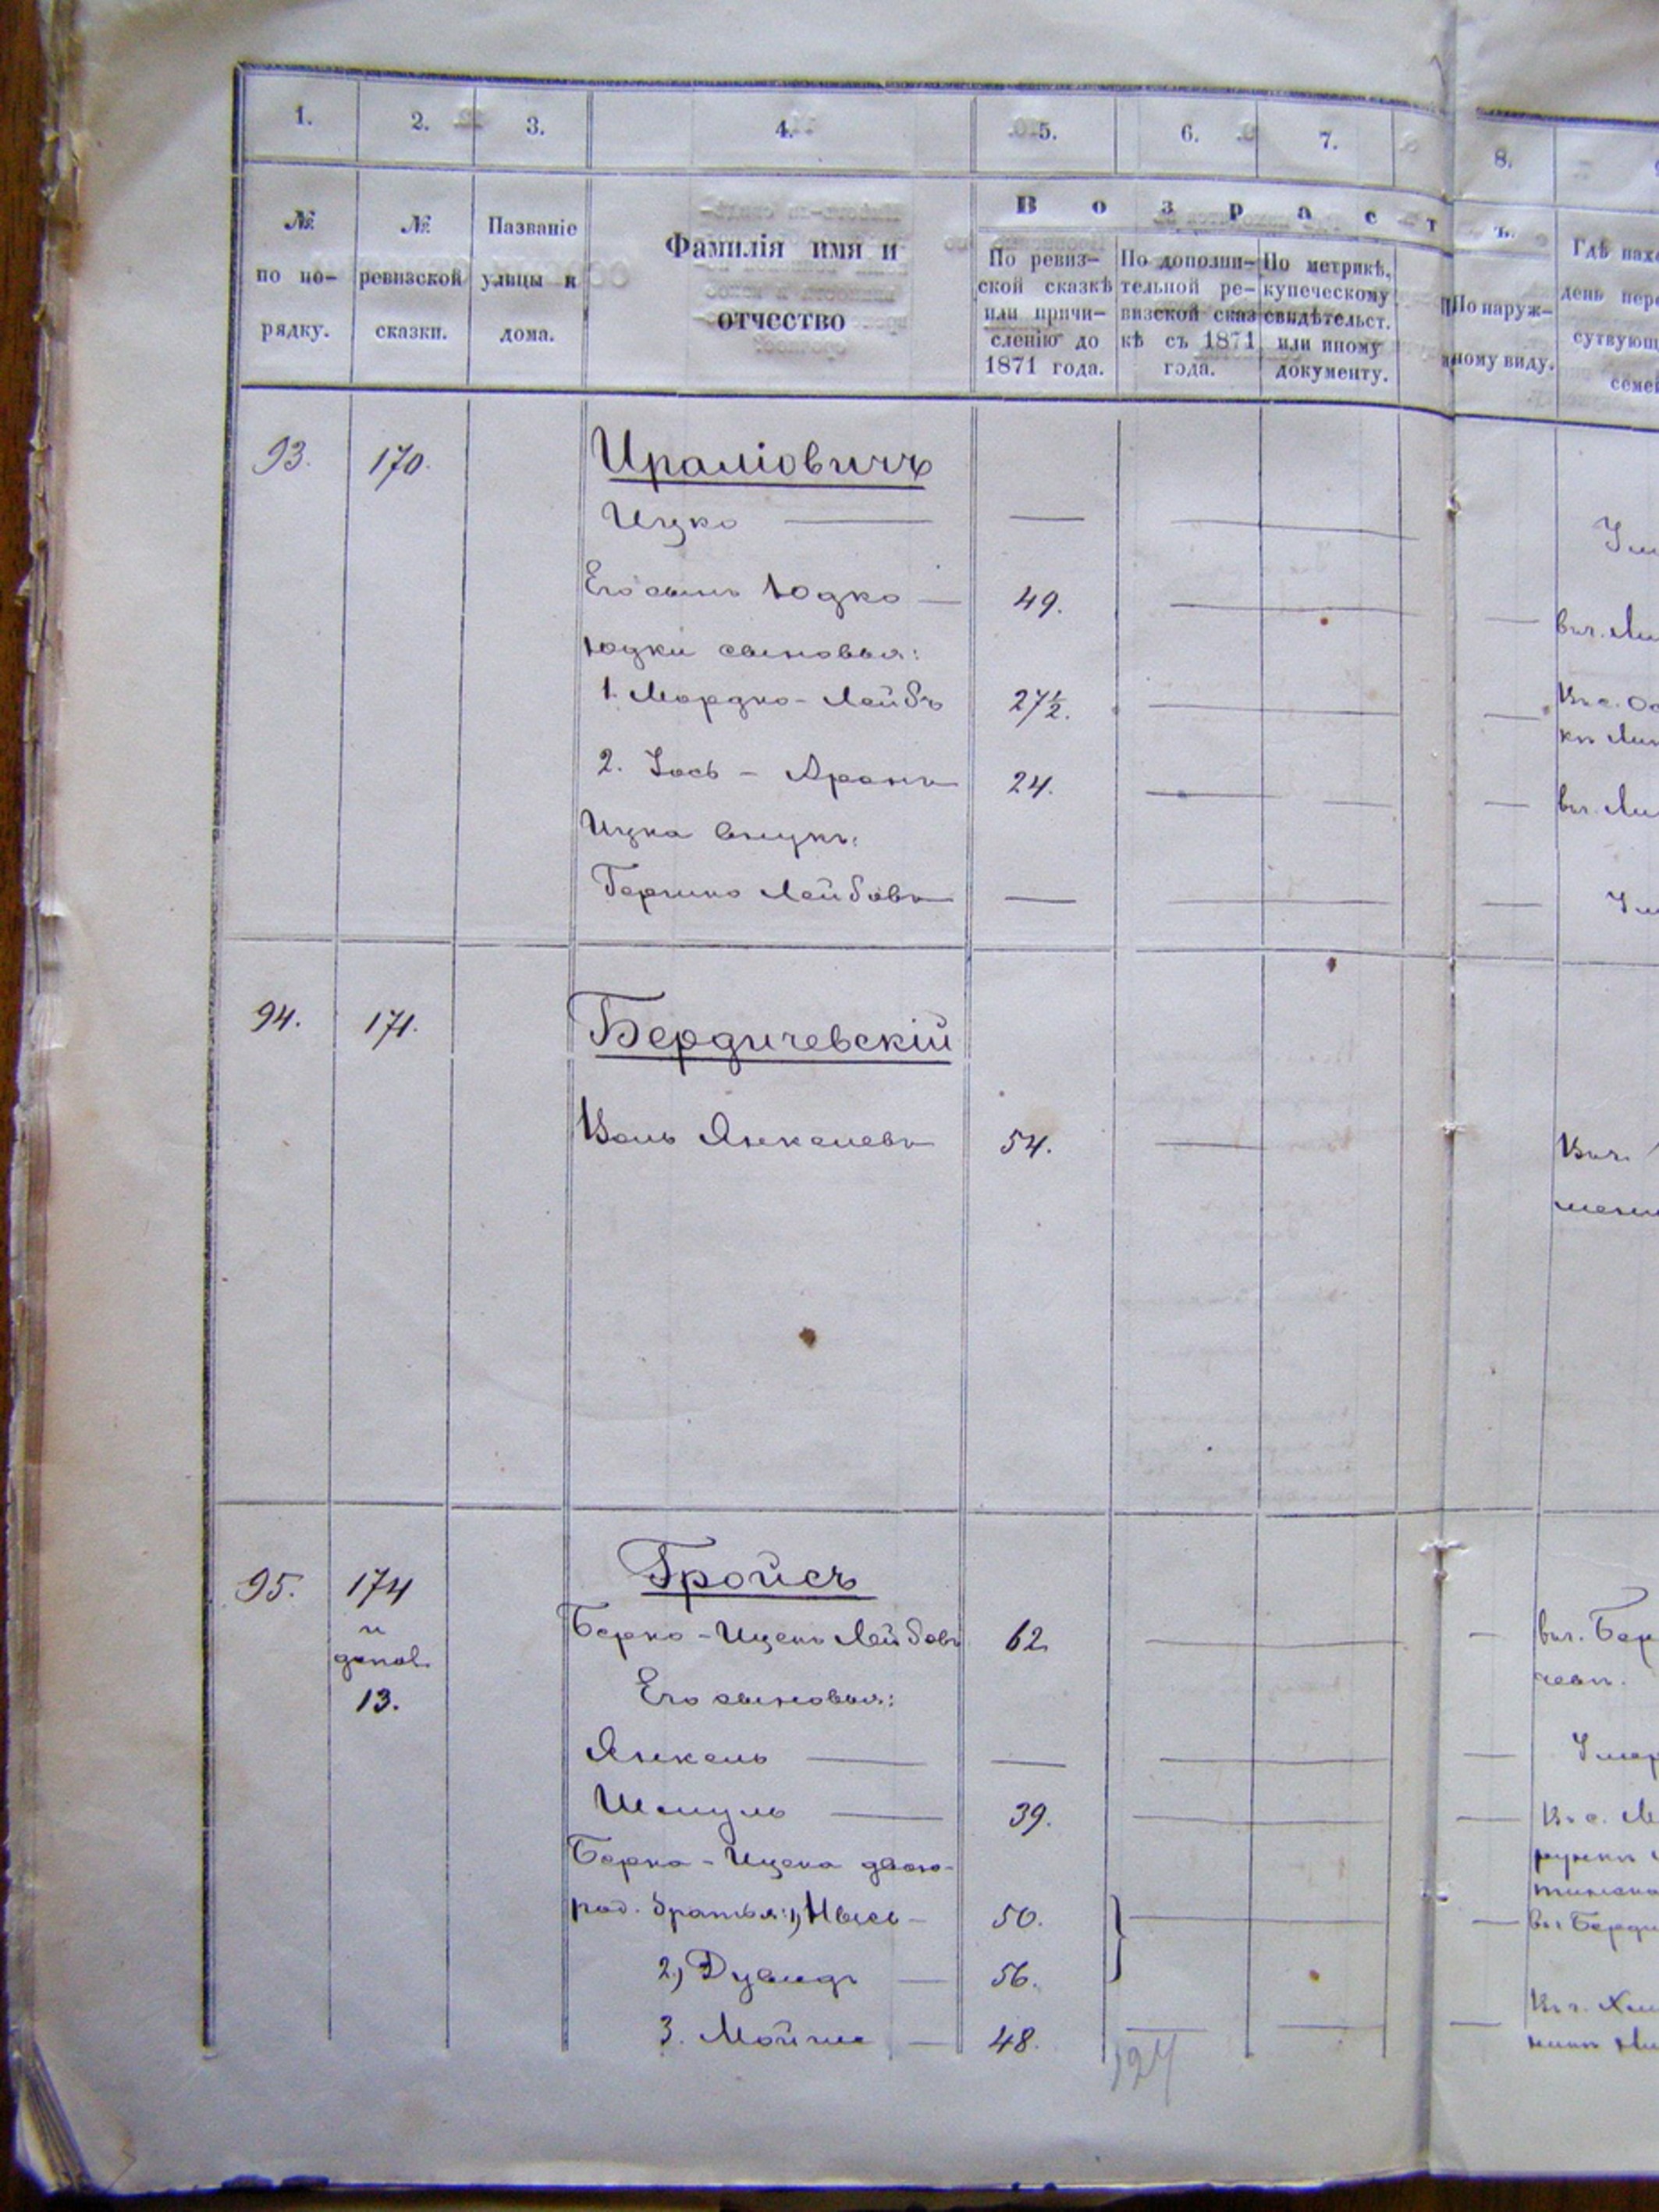 1. 2. 3. 4. 5. 6. 7. 8.
№ по порядку.
№ ревизской сказки.
Названіе улицы и дома.
Фамилія имя и отчество
Возрастъ.
По ревизской сказкѣ или причисленію до 1871 года.
По дополнительной ревизской сказкѣ съ 1871 года.
По метрикѣ, купеческому свидѣтельст. или иному документу.
По наружному виду.
93. 170.
Ицко — —
Его сынъ Юдко — 49. — въ г. Ли
Юдки сыновья:
1. Мордко-Лейбъ 27½. —
2. Іось - Аронъ 24. — — въ г. Ли
Ицка внукъ:
Гершко Лейбовъ — — —
94. 171. Бердичевскій
Янкелевъ 54. — Въ г.
95. 174 и допол. 13.
Гройсъ
Берко-Ицекъ Лейбовъ 62 — — въ г. Бер
Его сыновья:
Янкель — — — — Умер
Шмуль — 39. — — Въ с. М
Берка-Ицека двою-
род. братья: 1, 50. — — въ Берди
2, Дувидъ — 56.
3. Мойше — 48. — — — Въ г. Хм
124